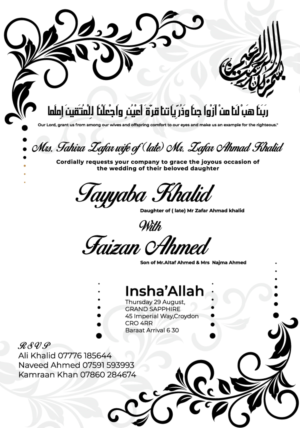 بسم الله الرحمن الرحيم
رَبَّنَا هَبْ لَنَا مِنْ أَزْوَاجِنَا وَذُرِّيَّاتِنَا قُرَّةَ أَعْيُنٍ وَاجْعَلْنَا لِلْمُتَّقِينَ إِمَامًا
Our Lord, grant us from among our wives and offspring comfort to our eyes and make us an example for the righteous."
Mrs. Tahira Zafar wife of (late) Mr. Zafar Ahmad Khalid
Cordially requests your company to grace the joyous occasion of
the wedding of their beloved daughter
Tayyaba Khalid
Daughter of ( late) Mr Zafar Ahmad khalid
With
Faizan Ahmed
Son of Mr.Altaf Ahmed & Mrs Najma Ahmed
Insha'Allah
Thursday 29 August,
GRAND SAPPHIRE
45 Imperial Way,Croydon
CRO 4RR
Baraat Arrival 6 30
RSVP
Ali Khalid 07776 185644
Naveed Ahmed 07591 593993
Kamraan Khan 07860 284674